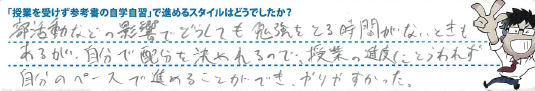 「授業を受けず参考書の自学自習」で進めるスタイルはどうでしたか?
部活動などの影響でどうしても勉強をとる時間がないときも
あるが、自分で配分を決めれるので、授業の進度にとらわれず
自分のペースで進めることができ、やりやすかった。